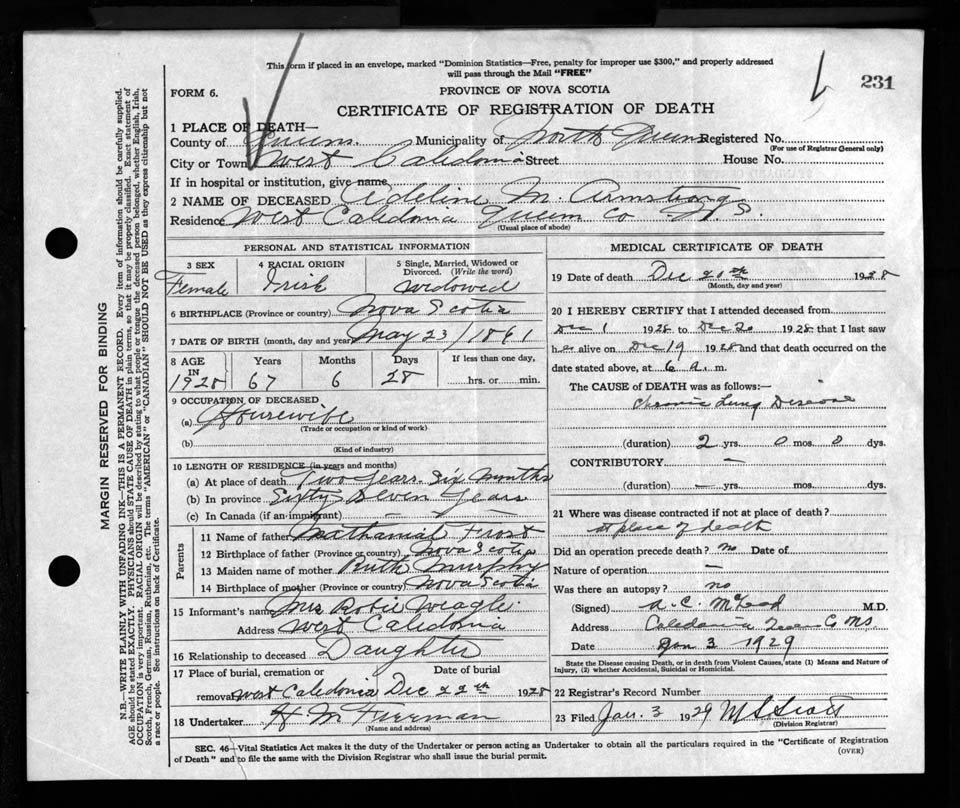 This form if placed in an envelope, marked "Dominion Statistics—Free, penalty for improper use $300," and properly addressed
will pass through the Mail "FREE"
231
FORM 6.
PROVINCE OF NOVA SCOTIA
CERTIFICATE OF REGISTRATION OF DEATH
1 PLACE OF DEATH—
County of Queens. Municipality of North Queens Registered No.
(For use of Registrar General only)
City or Town West Caledonia Street House No.
If in hospital or institution, give name
2 NAME OF DECEASED Adeline M. Armstrong
Residence West Caledonia Queens Co N. S.
(Usual place of abode)
PERSONAL AND STATISTICAL INFORMATION
3 SEX
Female
4 RACIAL ORIGIN
Irish
5 Single, Married, Widowed or
Divorced. (Write the word)
Widowed
6 BIRTHPLACE (Province or country) Nova Scotia
7 DATE OF BIRTH (month, day and year) May 23/1861
8 AGE IN 1928
Years 67
Months 6
Days 28
If less than one day,
hrs. or min.
9 OCCUPATION OF DECEASED
(a) Housewife
(Trade or occupation or kind of work)
(b)
(Kind of industry)
10 LENGTH OF RESIDENCE (in years and months)
(a) At place of death Two years. Six Months
(b) In province Sixty Seven Years
(c) In Canada (if an immigrant) — —
Parents
11 Name of father Nathanial Frost
12 Birthplace of father (Province or country) Nova Scotia
13 Maiden name of mother Ruth Murphy
14 Birthplace of mother (Province or country) Nova Scotia
15 Informant's name Mrs Rosie Weagle
Address West Caledonia
16 Relationship to deceased Daughter
17 Place of burial, cremation or Date of burial
removal West Caledonia Dec 22th 1928
18 Undertaker H M Freeman
(Name and address)
MEDICAL CERTIFICATE OF DEATH
19 Date of death Dec 20th 1928
(Month, day and year)
20 I HEREBY CERTIFY that I attended deceased from
Dec 1 1928 to Dec 20 1928 that I last saw
her alive on Dec 19 1928 and that death occurred on the
date stated above, at 6 a. m.
The CAUSE of DEATH was as follows:—
Chronic Lung Disease
(duration) 2 yrs. 0 mos. 0 dys.
CONTRIBUTORY —
(duration) — yrs. mos. dys.
21 Where was disease contracted if not at place of death?
at place of death
Did an operation precede death? no Date of
Nature of operation —
Was there an autopsy? no
(Signed) A. C. McLeod M.D.
Address Caledonia Queens Co NS
Date Jan 3 1929
State the Disease causing Death, or in death from Violent Causes, state (1) Means and Nature of
Injury, (2) whether Accidental, Suicidal or Homicidal.
22 Registrar's Record Number
23 Filed Jan. 3 1929
(Division Registrar)
SEC. 46—Vital Statistics Act makes it the duty of the Undertaker or person acting as Undertaker to obtain all the particulars required in the "Certificate of Registration
of Death" and to file the same with the Division Registrar who shall issue the burial permit.
(OVER)
MARGIN RESERVED FOR BINDING
N.B.—WRITE PLAINLY WITH UNFADING INK—THIS IS A PERMANENT RECORD. Every item of information should be carefully supplied.
AGE should be stated EXACTLY. PHYSICIANS should STATE CAUSE OF DEATH in plain terms, so that it may be properly classified. Exact statement of
OCCUPATION is very important. RACIAL ORIGIN will be described by stating to what people or tongue the deceased person belonged, whether English, Irish,
Scotch, French, German, Russian, Ruthenian, etc. The terms "AMERICAN" or "CANADIAN" SHOULD NOT BE USED as they express citizenship but not
a race or people. See instructions on back of Certificate.